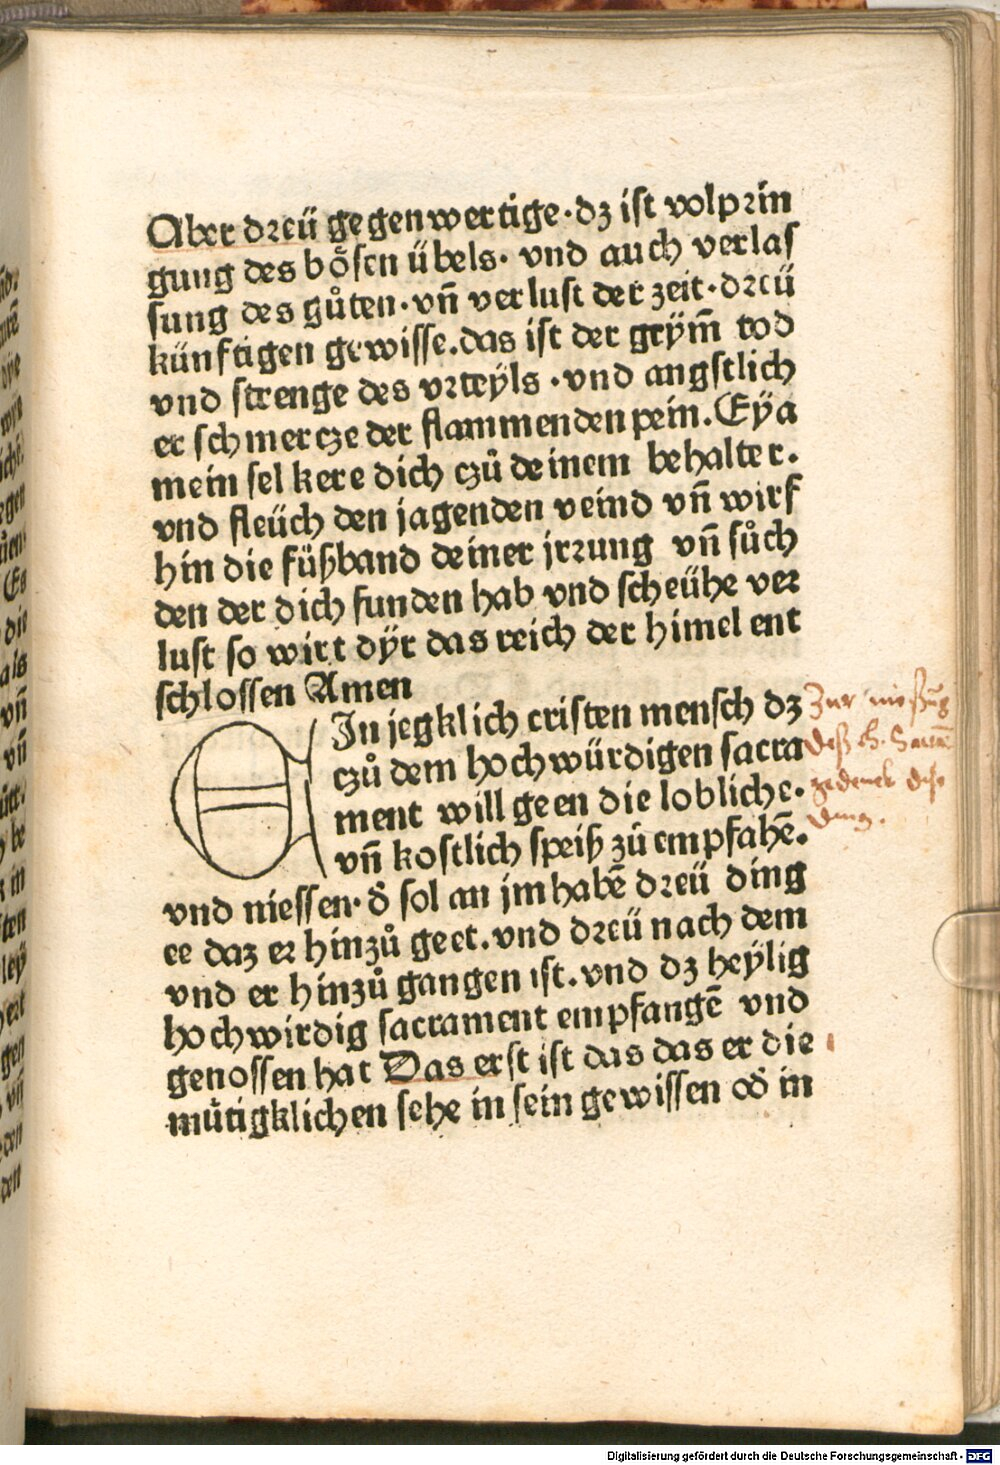 Aber dreü gegenwertige·dz ist volprin
gung des bo̊sen übels· vnd auch verlas
sung des gůten·vn̄ verlust der zeit·dreü
künftigen gewisse.das ist der grym̄ tod
vnd strenge des vrteÿls ·vnd angstlich
er schmercze der flammenden pein.Eÿa
mein sel kere dich czů deinem behalter.
vnd fleüch den jagenden veind vn̄ wirf
hin die füßband deiner jrrung vn̄ sůch
den der dich funden hab vnd scheühe ver
lust so wirt dÿr das reich der himel ent
schlossen Amen
EIn jegklich cristen mensch dz
czů dem hochwürdigen sacra
ment will geen die lobliche·
vn̄ kostlich speiß zů empfahē.
vnd niessen·d̄ sol an jm habē dreü ding
ee daz er hinzů geet.vnd dreü nach dem
vnd er hinzů gangen ist.vnd dz heÿlig
hochwirdig sacrament empfangē vnd
genossen hat Das erst ist das das er die
mu̇tigklichen sehe in sein gewissen od̄ in
Zur nießūg
deß H. Sacra
gedenck dise
ding.
Digitalisierung gefördert durch die Deutsche Forschungsgemeinschaft - DFG